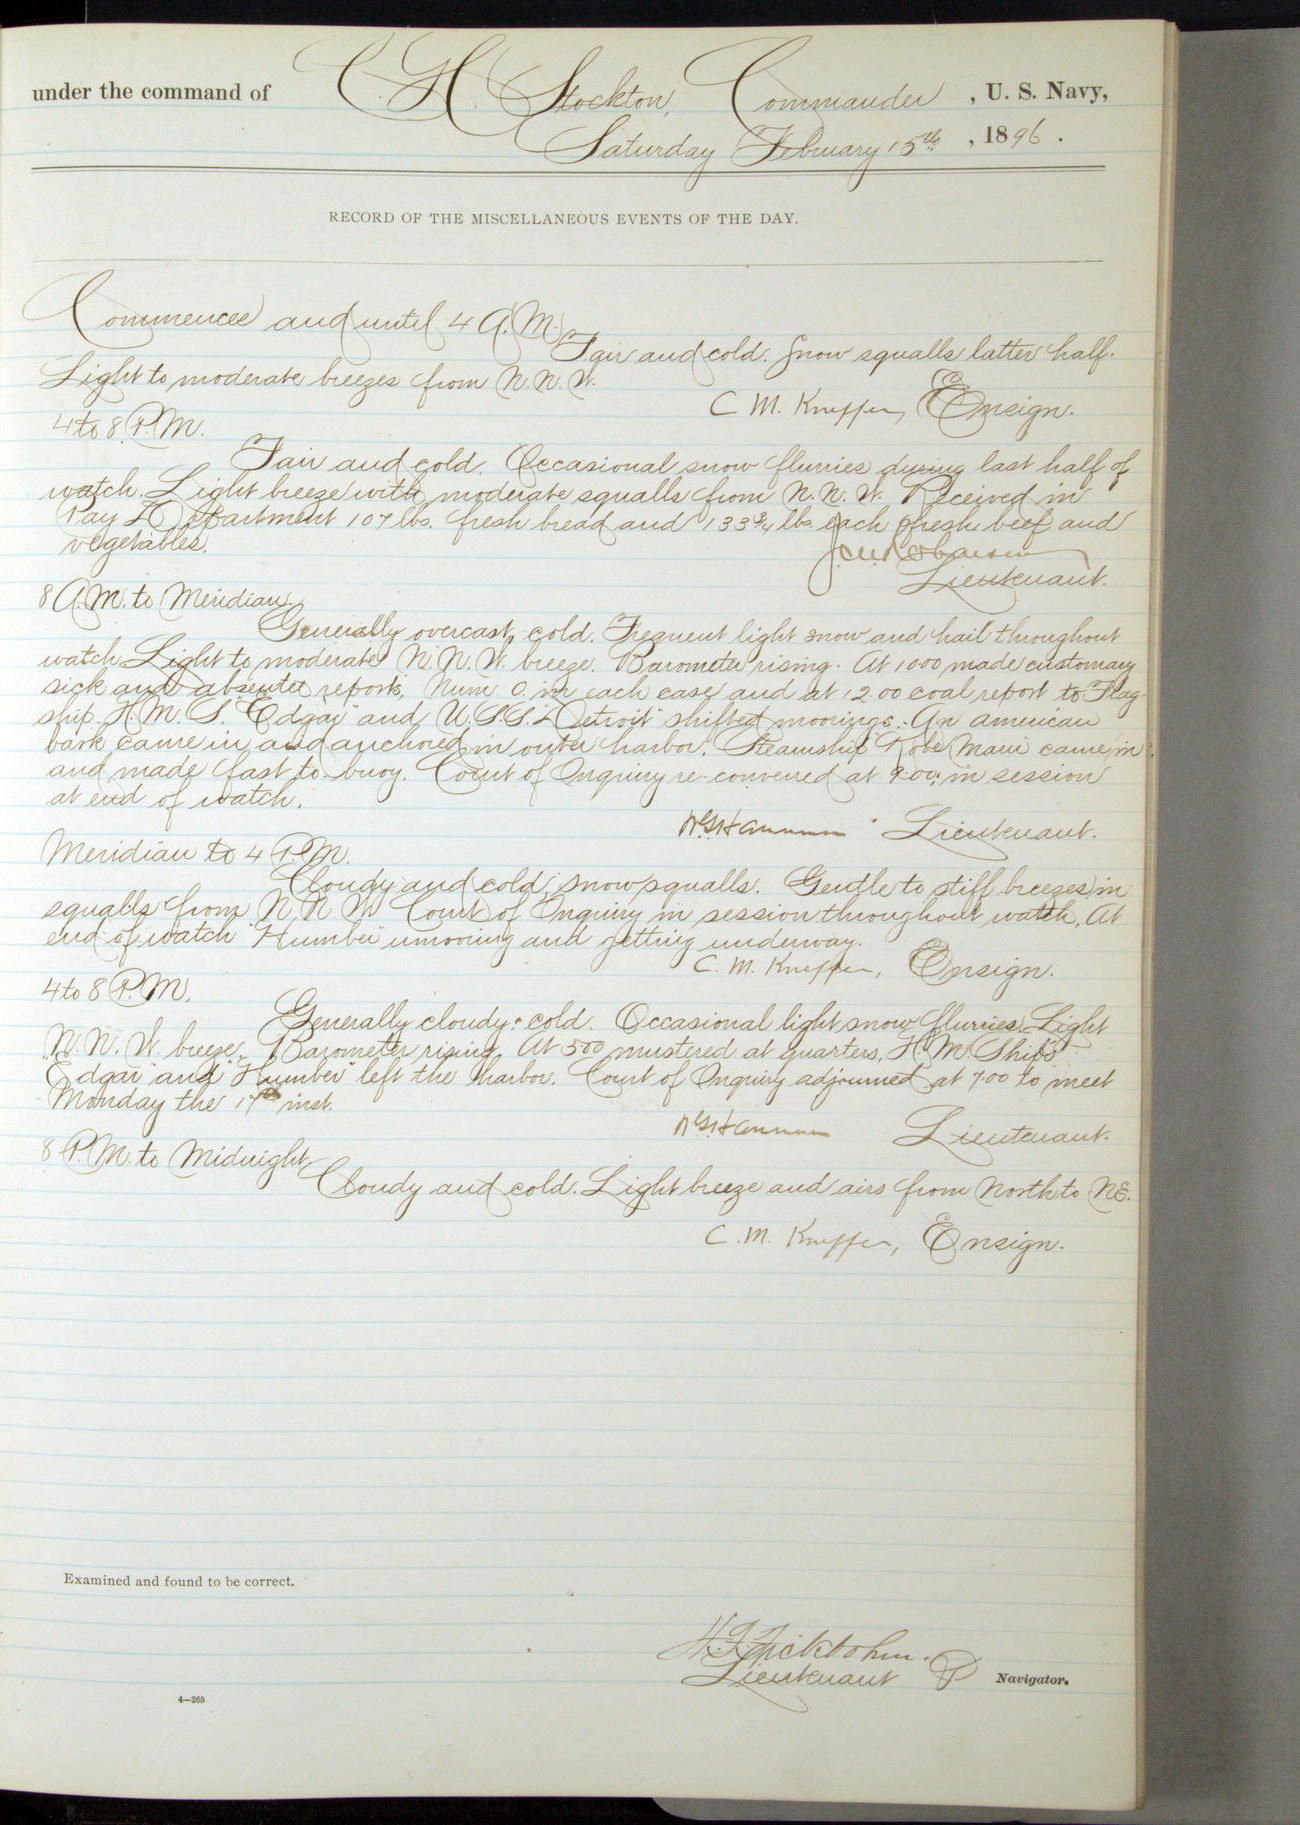 under the command of C. H. Stockton, Commander, U. S. Navy,
Saturday February 15th, 1896.
RECORD OF THE MISCELLANEOUS EVENTS OF THE DAY.
Commences and until 4 A.M.
Fair and cold. Snow squalls latter half.
Light to moderate breezes from N.N.W.
C. M. Knepper, Ensign.
4 to 8 P.M.
Fair and cold. Occasional snow flurries during last half of
watch. Light breeze with moderate squalls from N.N.W. Received in
Pay Department 107 lbs. fresh bread and 133 3/4 lbs. each fresh beef and
vegetables.
Lieutenant.
8 A.M. to Meridian.
Generally overcast, cold. Frequent light snow and hail throughout
watch. Light to moderate N.N.W. breeze. Barometer rising. At 10.00 made customary
sick and absentee reports, Num. 0. in each case and at 12.00 coal report to Flag
ship. H.M.S. "Edgar" and U.S.S. "Detroit" shifted moorings. An american
bark came in and anchored in outer harbor. Steamship "Kobe Maru" came in
and made fast to buoy. Court of Inquiry re-convened at 9.00; in session
at end of watch.
Lieutenant.
Meridian to 4 P.M.
Cloudy and cold, snow squalls. Gentle to stiff breezes in
squalls from N.N.W. Court of Inquiry in session throughout watch. At
end of watch "Humber" unmooring and getting underway.
C. M. Knepper, Ensign.
4 to 8 P.M.
Generally cloudy: cold. Occasional light snow flurries. Light
N.N.W. breeze. Barometer rising. At 5.00 mustered at quarters. H.M. Ships
"Edgar" and "Humber" left the harbor. Court of Inquiry adjourned at 7.00 to meet
Monday the 17th inst.
Lieutenant.
8 P.M. to Midnight
Cloudy and cold. Light breeze and airs from North to NE.
C. M. Knepper, Ensign.
Examined and found to be correct.
Lieutenant Navigator.
4—265